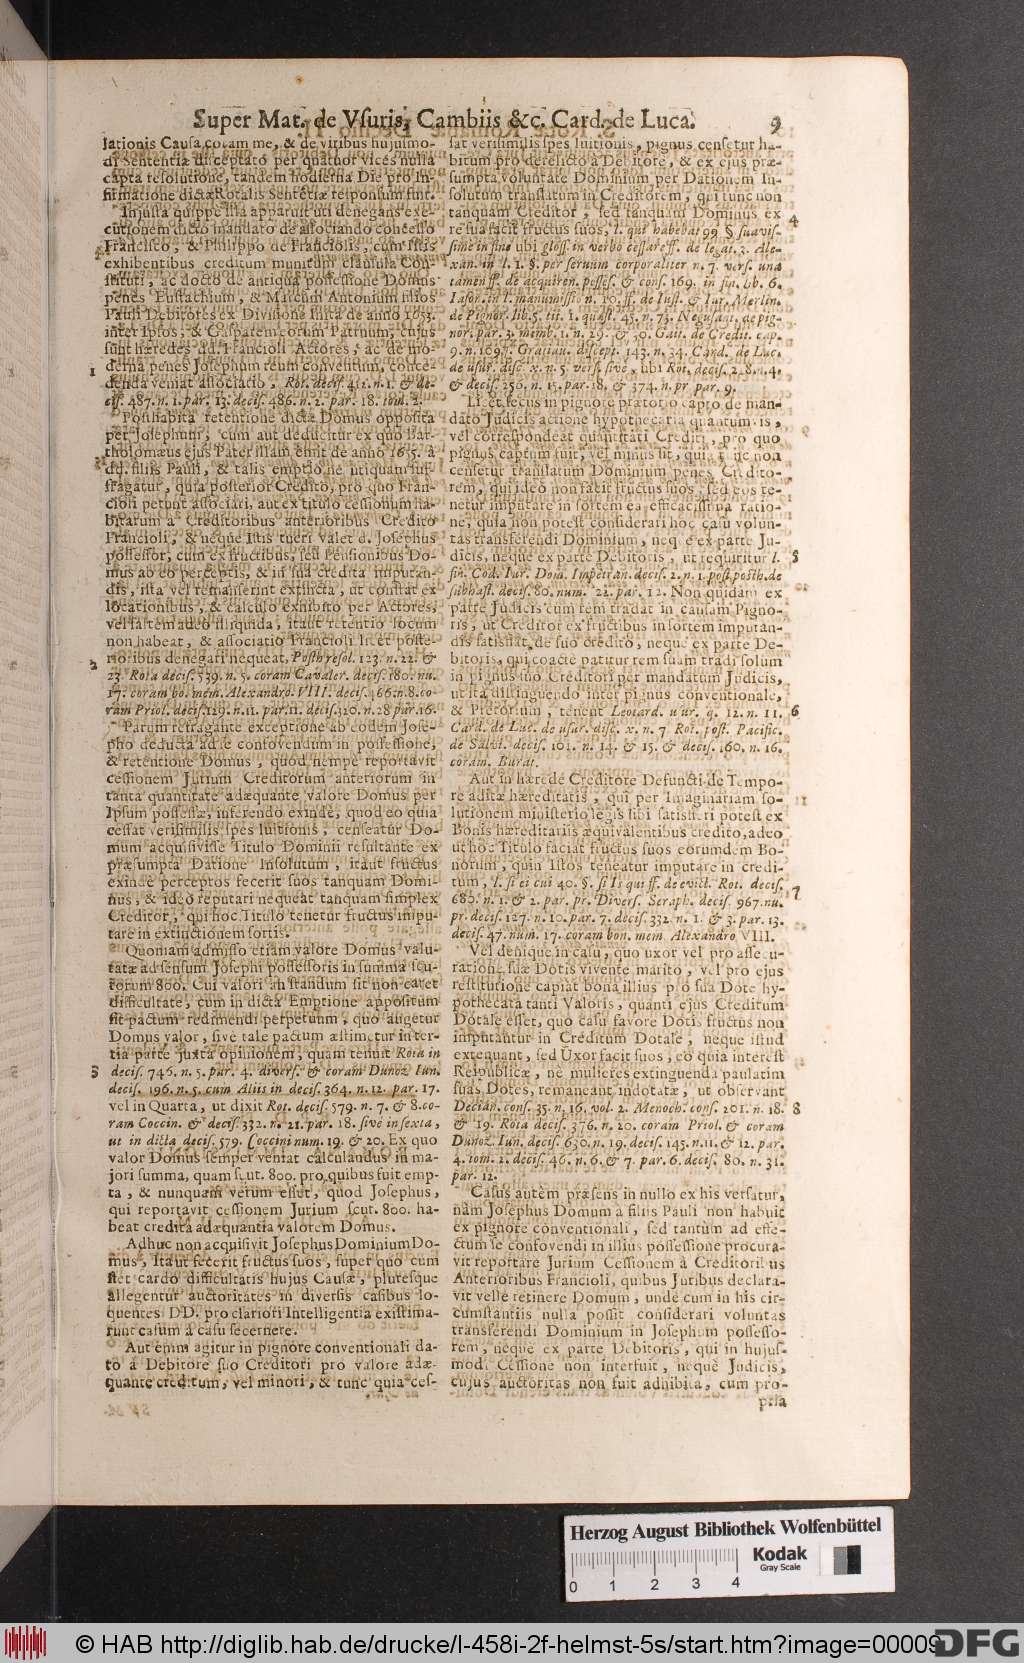 Super Mat. de Vsuris, Cambiis &c. Card. de Luca. 9
lationis Causa coram me, & de viribus hujusmo-
di Sententiæ disceptato per quatuor vices nulla
capta resolutione, tandem hodierna Die pro In-
firmatione dictæ Rotalis Sententiæ responsum fuit.
Injusta quippe ista apparuit uti denegans exe-
cutionem dicto mandato de associando concesso
Francisco, & Philippo de Franciolis, cum Istis
exhibentibus creditum munitum clausula Con-
stituti, ac docto de antiqua possessione Domus
penes Eustachium, & Marcum Antonium filios
Pauli Debitores ex Divisione Inita de anno 1653.
inter Ipsos, & Gasparem eorum Patruum, cujus
sunt hæredes dd. Francioli Actores, ac de mo-
derna penes Josephum reum conventum, conce-
1 denda veniat associatio, Rot. decis. 412. n. 1. & de-
cis. 487. n. 1. par. 13. decis. 486. n. 2. par. 18. tom. 2.
Posthabita retentione dictæ Domus opposita
per Josephum, cum aut deducitur ex quo Bar-
tholomæus ejus Pater illam emit de anno 1655. à
dd. filiis Pauli, & talis emptio ne utiquam suf-
fragatur, quia posterior Credito, pro quo Fran-
cioli petunt associari, aut ex titulo cessionum ha-
bitarum à Creditoribus anterioribus Credito
Francioli, & neque Istis tueri valet d. Josephus
possessor, cum ex fructibus, seu pensionibus Do-
mus ab eo perceptis, & in sua credita imputan-
dis, ista vel remanserint extincta, ut constat ex
locationibus, & calculo exhibito per Actores,
vel saltem adeo illiquida, itaut retentio locum
non habeat, & associatio Francioli licet poste-
2 rioribus denegari nequeat, Posth resol. 123. n. 22. &
23. Rota decis. 539. n. 5. coram Cavaler. decis. 180. nu.
17. coram bo. mem. Alexandro VIII. decis. 166. n. 8. co-
ram Priol. decis. 129. n. 11. par. 11. decis. 420. n. 28 par. 16.
Parum refragante exceptione ab eodem Jose-
pho deducta ad se confovendum in possessione,
& retentione Domus, quod nempe reportavit
cessionem Jurium Creditorum anteriorum in
tanta quantitate adæquante valore Domus per
Ipsum possessæ, inferendo exinde, quod eo quia
cessat verisimilis spes luitionis, censeatur Do-
mum acquisivisse Titulo Dominii resultante ex
præsumpta Datione Insolutum, itaut fructus
exinde perceptos fecerit suos tanquam Domi-
nus, & ideo reputari nequeat tanquam simplex
Creditor, qui hoc Titulo tenetur fructus impu-
tare in extinctionem sortis.
Quoniam admisso etiam valore Domus valu-
tatæ ad sensum Josephi possessoris in summa scu-
torum 800. Cui valori an standum sit non caret
difficultate, cum in dicta Emptione appositum
sit pactum redimendi perpetuum, quo augetur
Domus valor, sive tale pactum æstimetur in ter-
tia parte juxta opinionem, quam tenuit Rota in
3 decis. 746. n. 5. par. 4. divers. & coram Dunoz. Iun.
decis. 196. n. 5. cum Aliis in decis. 364. n. 12. par. 17.
vel in Quarta, ut dixit Rot. decis. 579. n. 7. & 8. co-
ram Coccin. & decis. 332. n. 21. par. 18. sive in sexta,
ut in dicta decis. 579. Coccini num. 19. & 20. Ex quo
valor Domus semper veniat calculandus in ma-
jori summa, quam scut. 800. pro quibus fuit emp-
ta, & nunquam verum esset, quod Josephus,
qui reportavit cessionem Jurium scut. 800. ha-
beat credita adæquantia valorem Domus.
Adhuc non acquisivit Josephus Dominium Do-
mus, Itaut fecerit fructus suos, super quo cum
stet cardo difficultatis hujus Causæ, pluresque
allegentur auctoritates in diversis casibus lo-
quentes DD. pro clariori Intelligentia existima-
runt casum à casu secernere.
Aut enim agitur in pignore conventionali da-
to à Debitore suo Creditori pro valore adæ-
quante creditum, vel minori, & tunc quia ces-
sat verisimilis spes luitionis, pignus censetur ha-
bitum pro derelicto à Debitore, & ex ejus præ-
sumpta voluntate Dominium per Dationem In-
solutum translatum in Creditorem, qui tunc non
tanquam Creditor, sed tanquam Dominus ex 4
re sua facit fructus suos, l. qui habebat 99. § suavis-
sime in fine ubi gloss. in verbo cessare ff. de legat. 3. Ale-
xan. in l. 1. §. per servum corporaliter n. 7. vers. una
tamen ff. de acquiren. posses. & cons. 169. in fin. lib. 6.
Iason. in l. manumissio n. 10. ff. de Iust. & Iur. Merlin.
de Pignor. lib. 5. tit. 1. quæst. 45. n. 73. Negusant. de pig-
nor. par. 3. memb. 1. n. 29. & 30. Gait. de Credit. cap.
9. n. 1697. Gratian. discept. 143. n. 34. Card. de Luc.
de usur. disc. x. n. 5. vers. sive, ubi Rot. decis. 2. 8. n. 4.
& decis. 256. n. 15. par. 18. & 374. n. pr. par. 9.
Licet secus in pignore prætorio capto de man-
dato Judicis actione hypothecaria quantumvis,
vel correspondeat quantitati Crediti, pro quo
pignus captum fuit, vel minus sit, quia tunc non
censetur translatum Dominium penes Credito-
rem, qui ideo non facit fructus suos, sed eos te-
netur imputare in sortem ea efficacissima ratio-
ne, quia non potest considerari hoc casu volun-
tas transferendi Dominium, neque ex parte Ju-
dicis, neque ex parte Debitoris, ut requiritur l. 5
fin. Cod. Iur. Dom. Impetran. decis. 2. n. 1. post posth. de
subhast. decis. 80. num. 22. par. 12. Non quidam ex
parte Judicis cum rem tradat in causam Pigno-
ris, ut Creditor ex fructibus in sortem imputan-
dis satisfiat de suo credito, neque ex parte De-
bitoris, qui coacte patitur rem suam tradi solum
in pignus suo Creditori per mandatum Judicis,
ut ista distinguendo inter pignus conventionale,
& Prætorium, tenent Leotard. usur. q. 12. n. 11. 6
Card. de Luc. de usur. disc. x. n. 7 Rot. post. Pacific.
de Salvi. decis. 101. n. 14. & 15. & decis. 160. n. 16.
coram. Burat.
Aut in hærede Creditore Defuncti de Tempo-
re aditæ hæreditatis, qui per Imaginariam so-
lutionem ministerio legis sibi satisfieri potest ex
Bonis hæreditariis æquivalentibus credito, adeo
ut hoc Titulo faciat fructus suos eorumdem Bo-
norum, quin Istos teneatur imputare in credi-
tum, l. si ei cui 40. §. si Is qui ff. de evict. Rot. decis. 7
680. n. 1. & 2. par. pr. Divers. Seraph. decis. 967. nu.
pr. decis. 127. n. 10. par. 7. decis. 332. n. 1. & 3. par. 13.
decis. 47. num. 17. coram bon. mem Alexandro VIII.
Vel denique in casu, quo uxor vel pro assecu-
ratione suæ Dotis vivente marito, vel pro ejus
restitutione capiat bona illius pro sua Dote hy-
pothecata tanti Valoris, quanti ejus Creditum
Dotale esset, quo casu favore Dotis fructus non
imputantur in Creditum Dotale, neque istud
extenuant, sed Uxor facit suos, eo quia interest
Reipublicæ, ne mulieres extinguenda paulatim
suas Dotes, remaneant indotatæ, ut observant
Decian. cons. 35. n. 16. vol. 2. Menoch. cons. 201. n. 18. 8
& 19. Rota decis. 376. n. 20. coram Priol. & coram
Dunoz. Iun. decis. 630. n. 19. decis. 145. n. 11. & 12. par.
4. tom. 2. decis. 46. n. 6. & 7. par. 6. decis. 80. n. 31.
par. 12.
Casus autem præsens in nullo ex his versatur,
nam Josephus Domum à filiis Pauli non habuit
ex pignore conventionali, sed tantum ad effe-
ctum se confovendi in illius possessione procura-
vit reportare Jurium Cessionem à Creditoribus
Anterioribus Francioli, quibus Juribus declara-
vit velle retinere Domum, unde cum in his cir-
cumstantiis nulla possit considerari voluntas
transferendi Dominium in Josephum possesso-
rem, neque ex parte Debitoris, qui in hujus-
modi Cessione non interfuit, neque Judicis,
cujus auctoritas non fuit adhibita, cum pro-
pria
Herzog August Bibliothek Wolfenbüttel
Kodak
Gray Scale
0 1 2 3 4
© HAB http://diglib.hab.de/drucke/l-458i-2f-helmst-5s/start.htm?image=00009
DFG